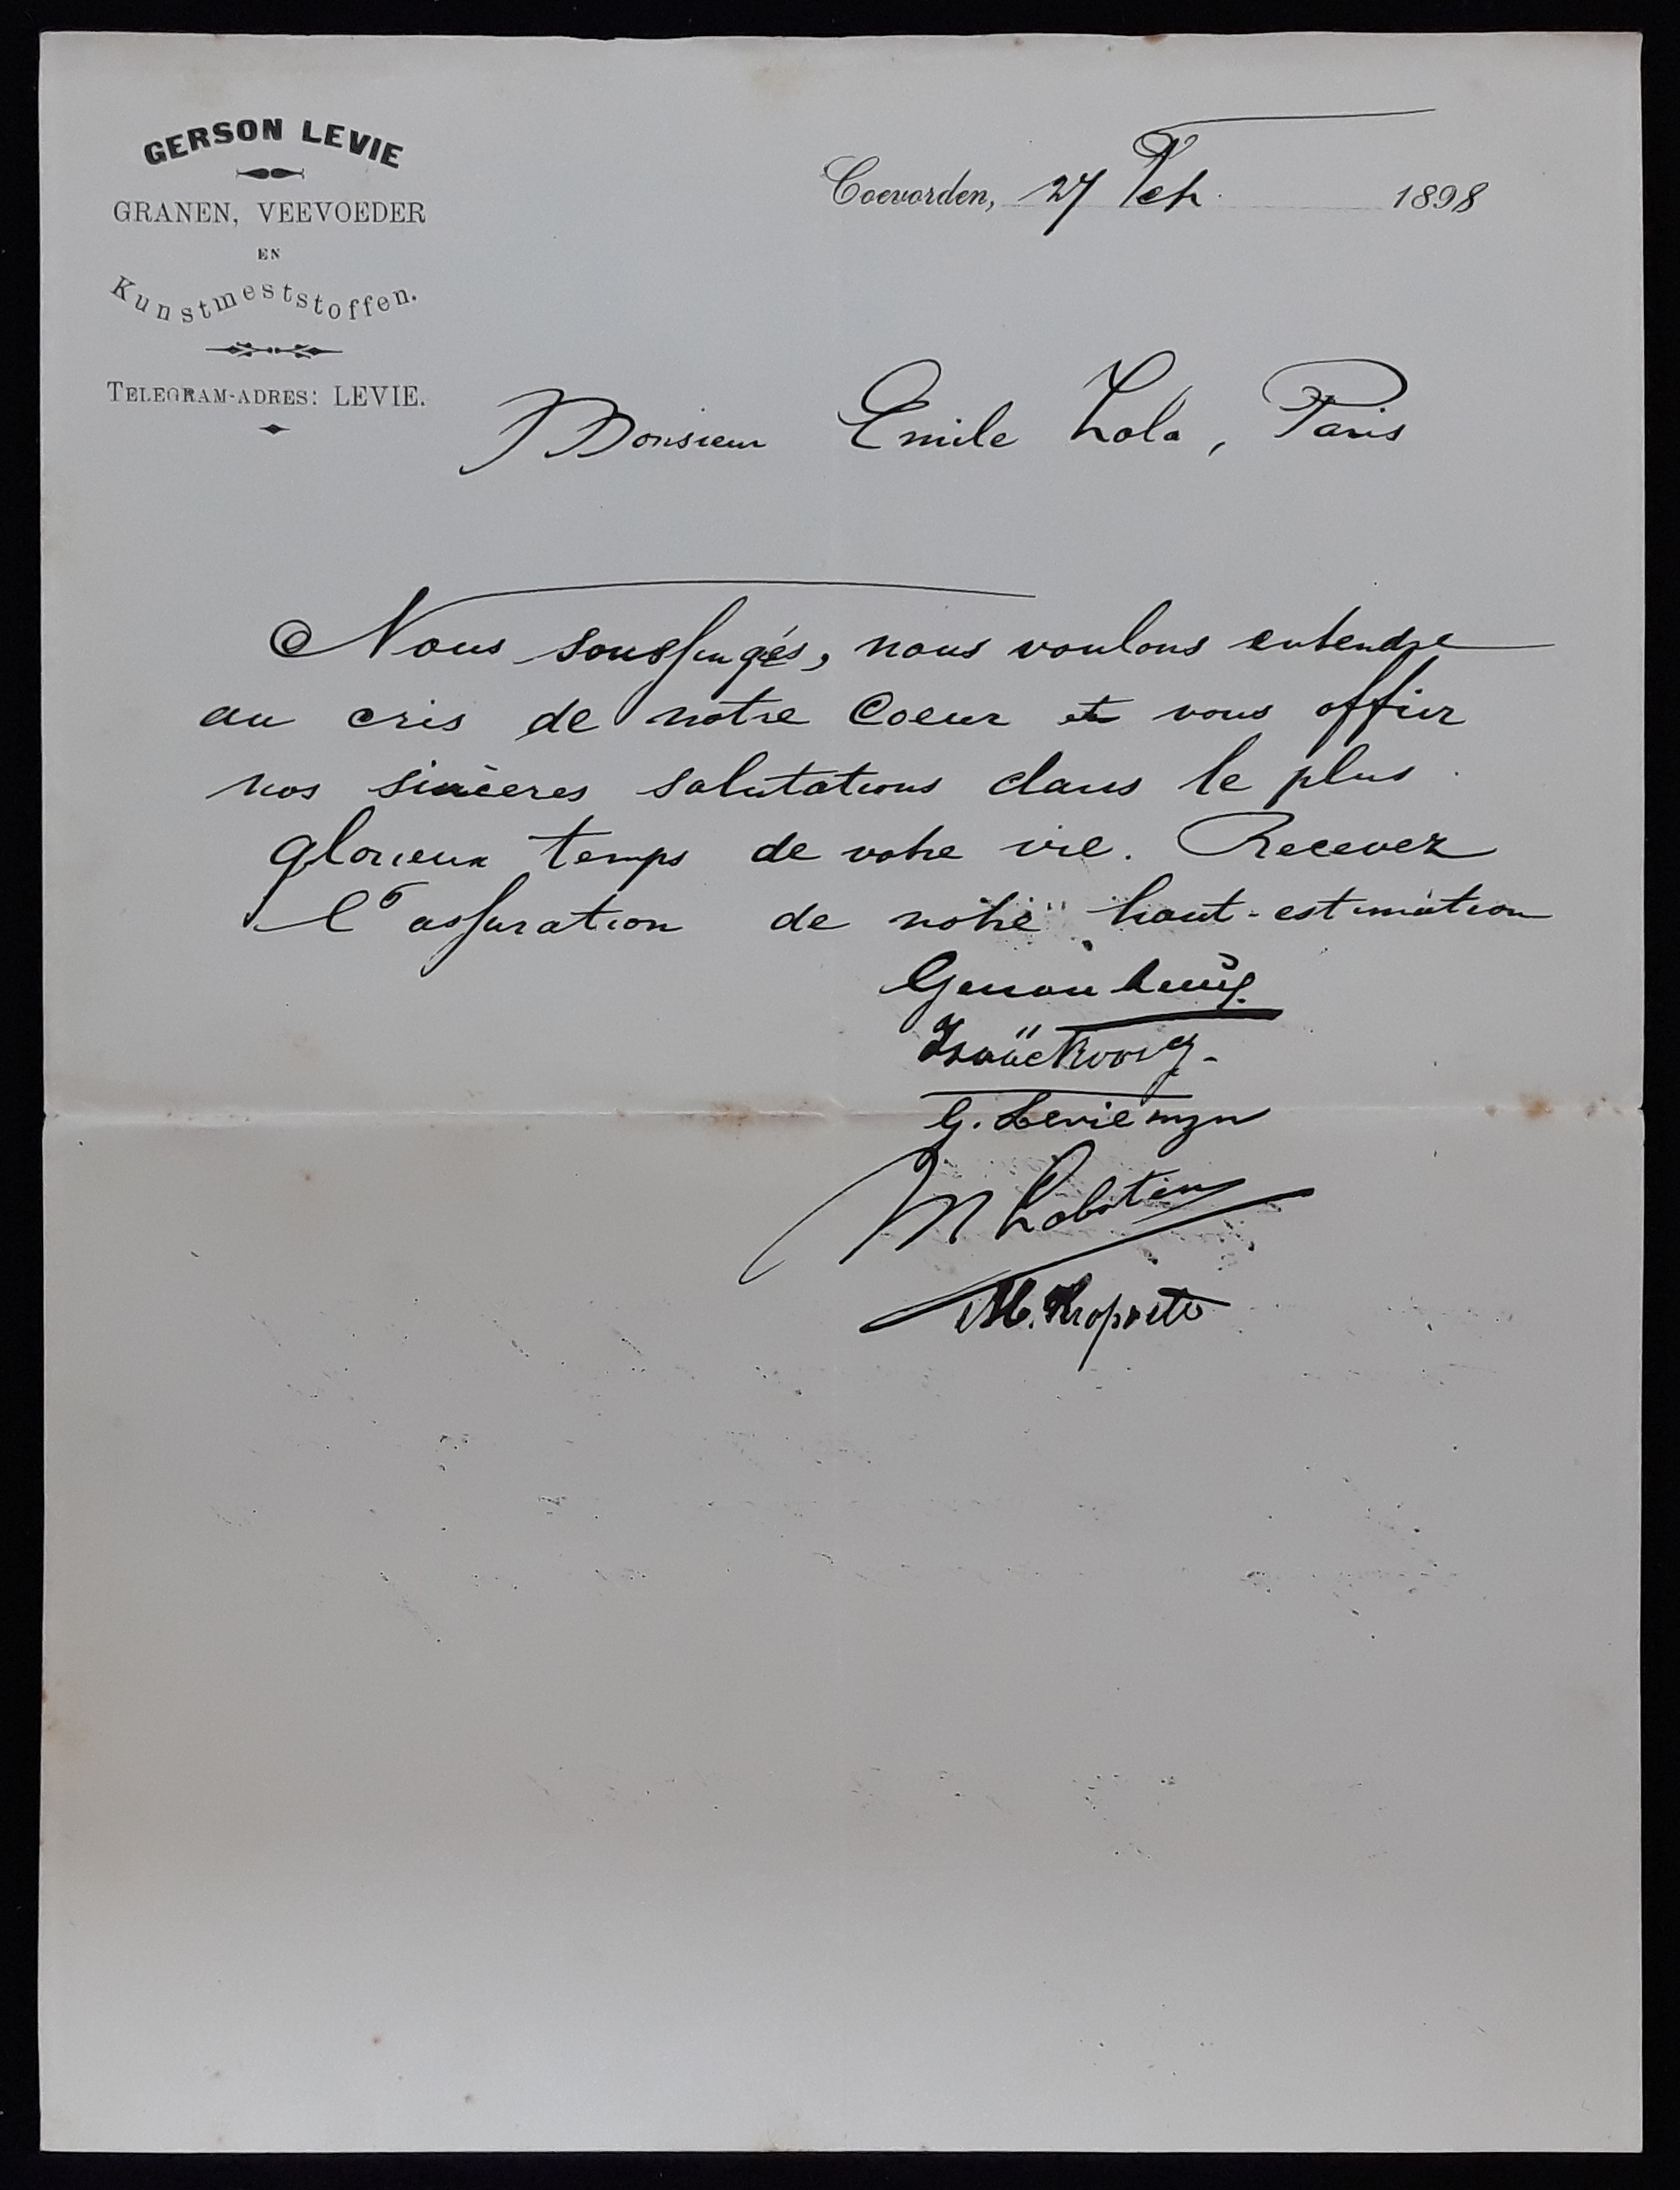 GERSON LEVIE
GRANEN, VEEVOEDER
EN
Kunstmeststoffen.
TELEGRAM-ADRES: LEVIE.
Coevorden, 27 Feb. 1898
Monsieur Emile Zola, Paris
Nous soussignés, nous voulons entendre
au cris de notre Coeur et vous offrir
nos sincères salutations dans le plus
glorieux temps de votre vie. Recevez
l'assuration de notre haut-estimation
Gerson Levie
Izaäc
G. Levie Mzn
M
M.